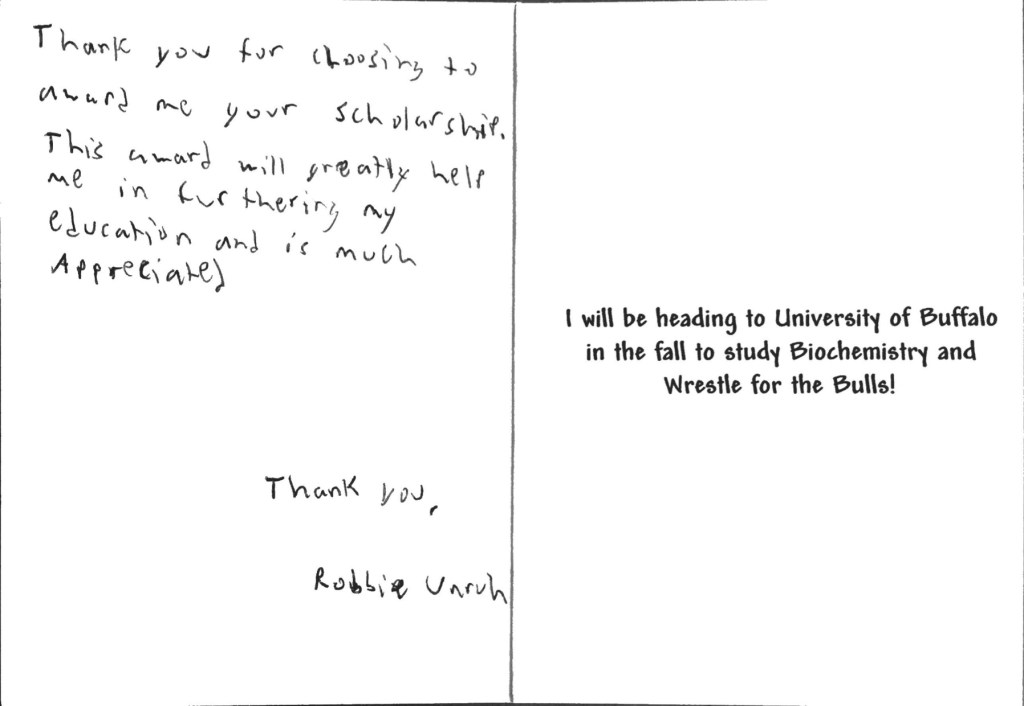 Thank you for choosing to
award me your scholarship.
This award will greatly help
me in furthering my
education and is much
Appreciated
Thank you,
Robbie Unruh
I will be heading to University of Buffalo
in the fall to study Biochemistry and
Wrestle for the Bulls!